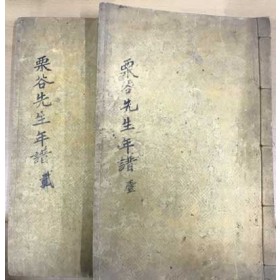 栗谷先生年譜 貳
栗谷先生年譜 壹